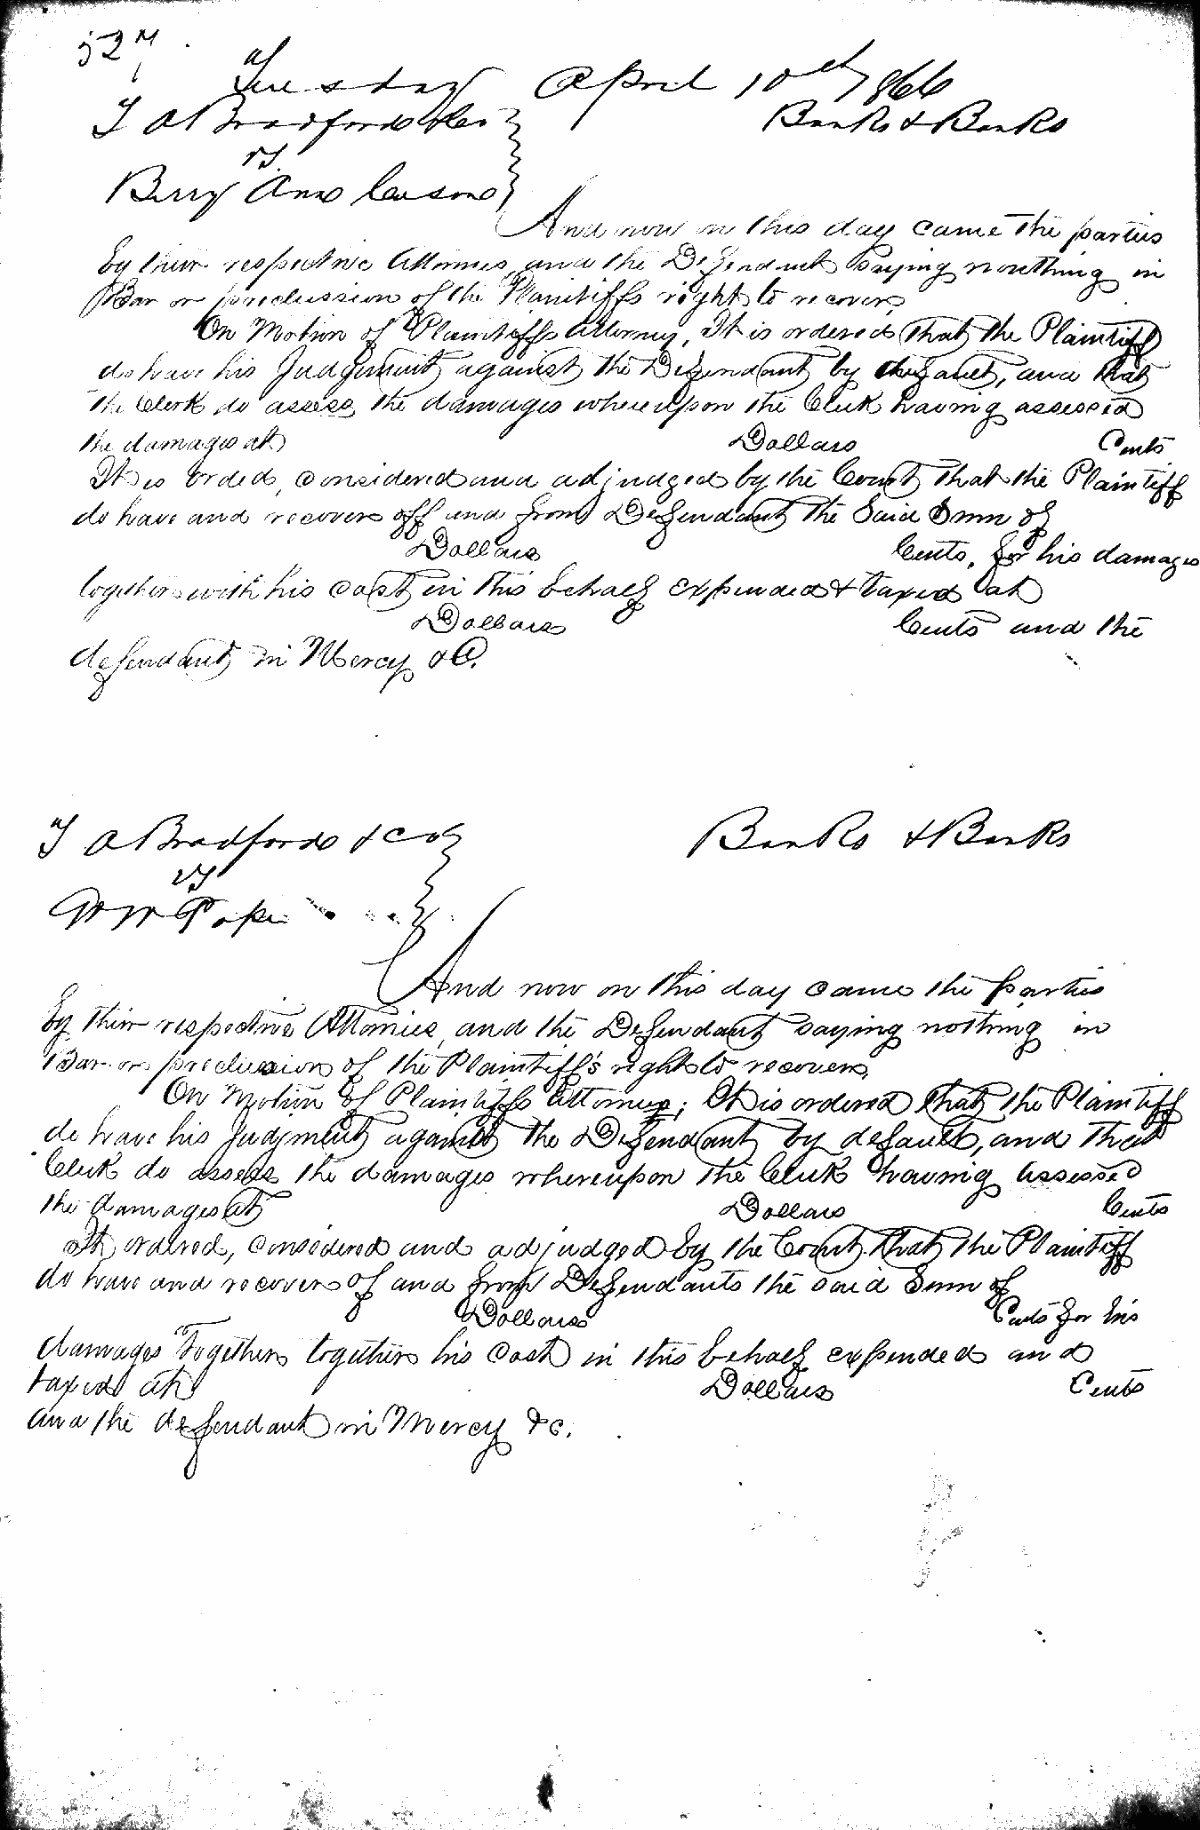 527
Tuesday April 10th 1866
T A Bradford & Co Banks & Banks
vs
Berry Anderson
And now on this day came the parties
by their respective Attornies, and the Defendant Saying nouthing in
Bar or preclussion of the Plaintiffs right to recover,
On Motion of Plaintiffs Attorney, It is ordered that the Plaintiff
do have his Judgement against the Defendant by default, and that
the Clerk do assess the damages whereupon the Clerk having assessed
the damages at Dollars Cents
It is orded, considered and adjudged by the Court that the Plaintiff
do have and recover off and from Defendant the Said Sum of
Dollars Cents, for his damages
together with his cost in this behalf expended & taxed at
Dollars Cents and the
defendant in Mercy &C.
T A Bradford & Co Banks & Banks
vs
W W Pope
And now on this day came the parties
by their respective Attornies, and the Defendant saying nothing in
Bar or preclusion of the Plaintiff's right to recover,
On Motion of Plaintiffs Attorney; It is ordered that the Plaintiff
do have his Judgment against the Defendant by default, and that
Clerk do assess the damages whereupon the Clerk having assessed
the damages at Dollars Cents
It ordered, considered and adjudged by the Court that the Plaintiff
do have and recover of and from Defendants the said Sum of
Dollars Cents for his
damages together together his Cost in this behalf expended and
taxed at Dollars Cents
and the defendant in Mercy &c.